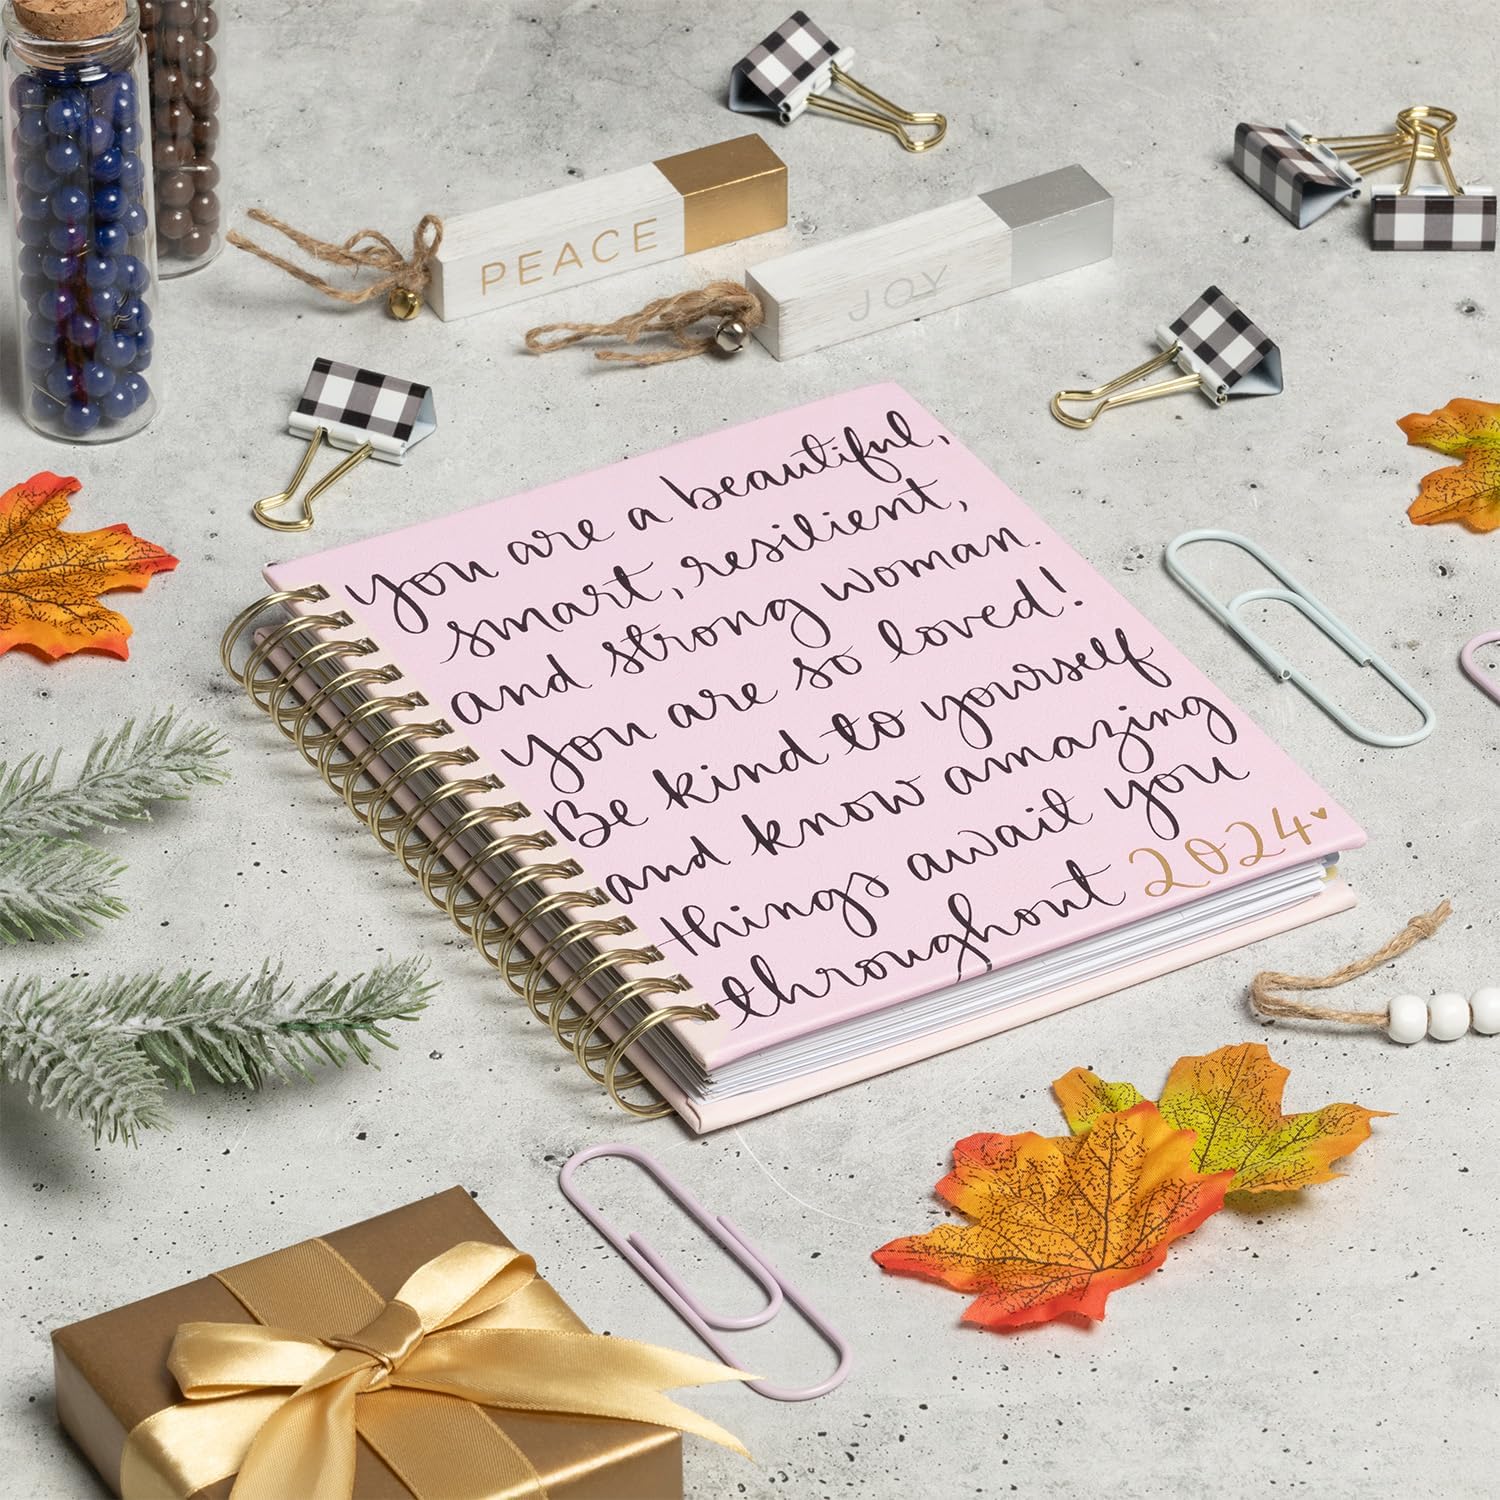 PEACE
JOY
You are a beautiful,
smart, resilient,
and strong woman.
You are so loved!
Be kind to yourself
and know amazing
things await you
throughout 2024